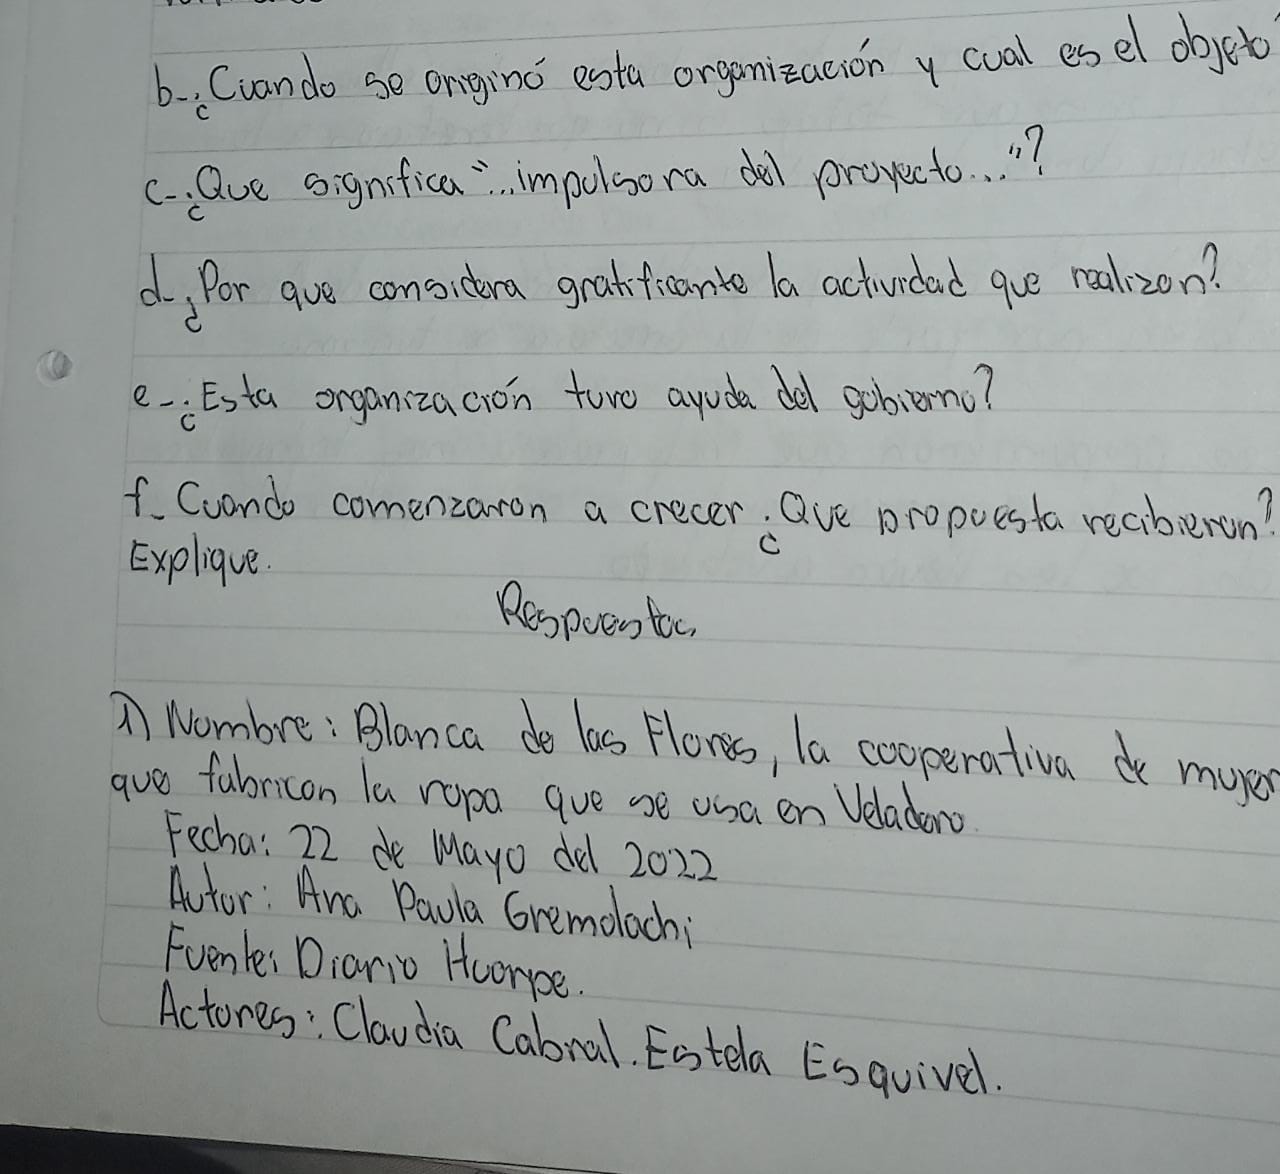 b-¿Cuando se originó esta organización y cual es el objeto
c-¿Que significa "...impulsora del proyecto..."?
d-¿Por que considera gratificante la actividad que realizan?
e-¿Esta organización tuvo ayuda del gobierno?
f- Cuando comenzaron a crecer ¿Que propuesta recibieron?
Explique.
Respuestas
1) Nombre: Blanca de las Flores, la cooperativa de mujer
que fabrican la ropa que se usa en Veladero.
Fecha: 22 de Mayo del 2022
Autor: Ana Paula Gremolachi
Fuente: Diario Huarpe.
Actores: Claudia Cabral. Estela Esquivel.